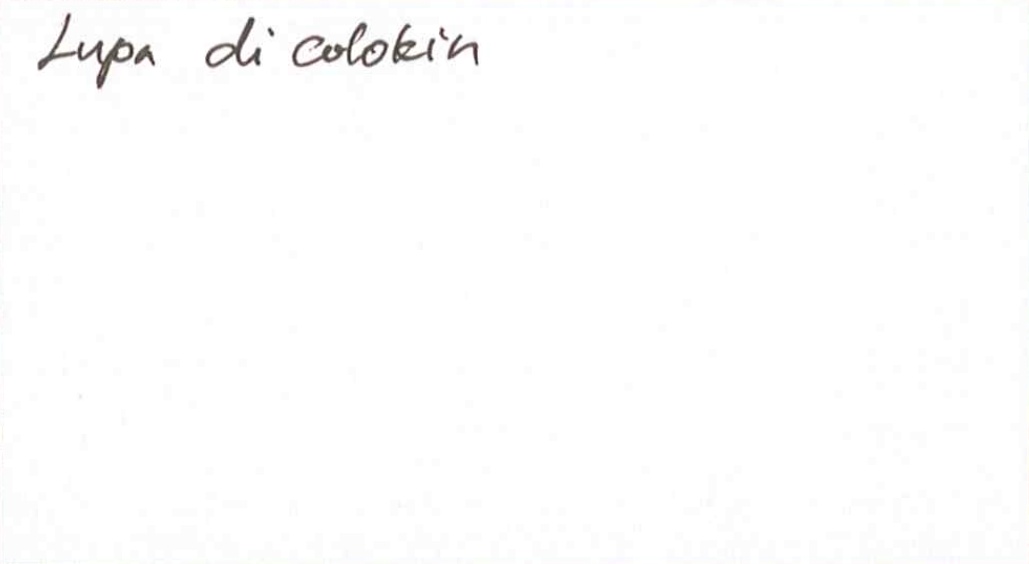 Lupa di colokin